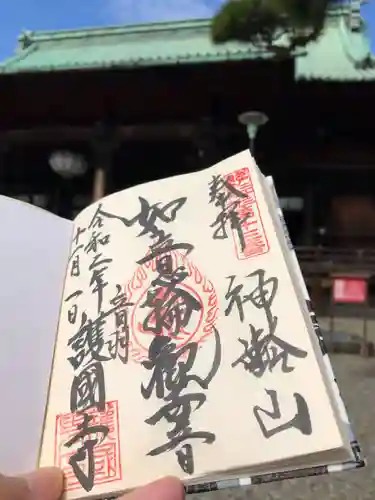 奉拝
神齢山
如意輪観世音
令和二年
十月一日
音羽
護國寺